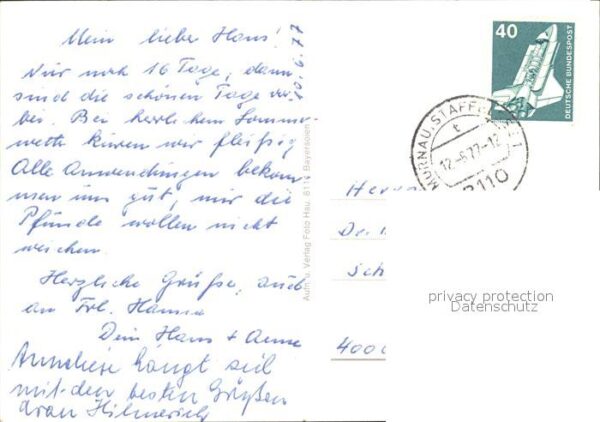 10.6.77
Mein lieber Hans!
Nur noch 16 Tage, dann
sind die schönen Tage vor-
bei. Bei herrlichem Sommer-
wetter kuren wir fleißig
Alle Anwendungen bekom-
men uns gut, nur die
Pfunde wollen nicht
weichen.
Herzliche Grüße, auch
an Frl. Hanna
Dein Hans + Anne
Anneliese hängt sich
mit den besten Grüßen
dran
Aufn. u. Verlag Foto Hau, 8113 Bayersoien
40
DEUTSCHE BUNDESPOST
MURNAU, STAFFELSEE 1
t
12.-6.77-12
8110
Herrn
Dr.
Sch
4000
privacy protection
Datenschutz